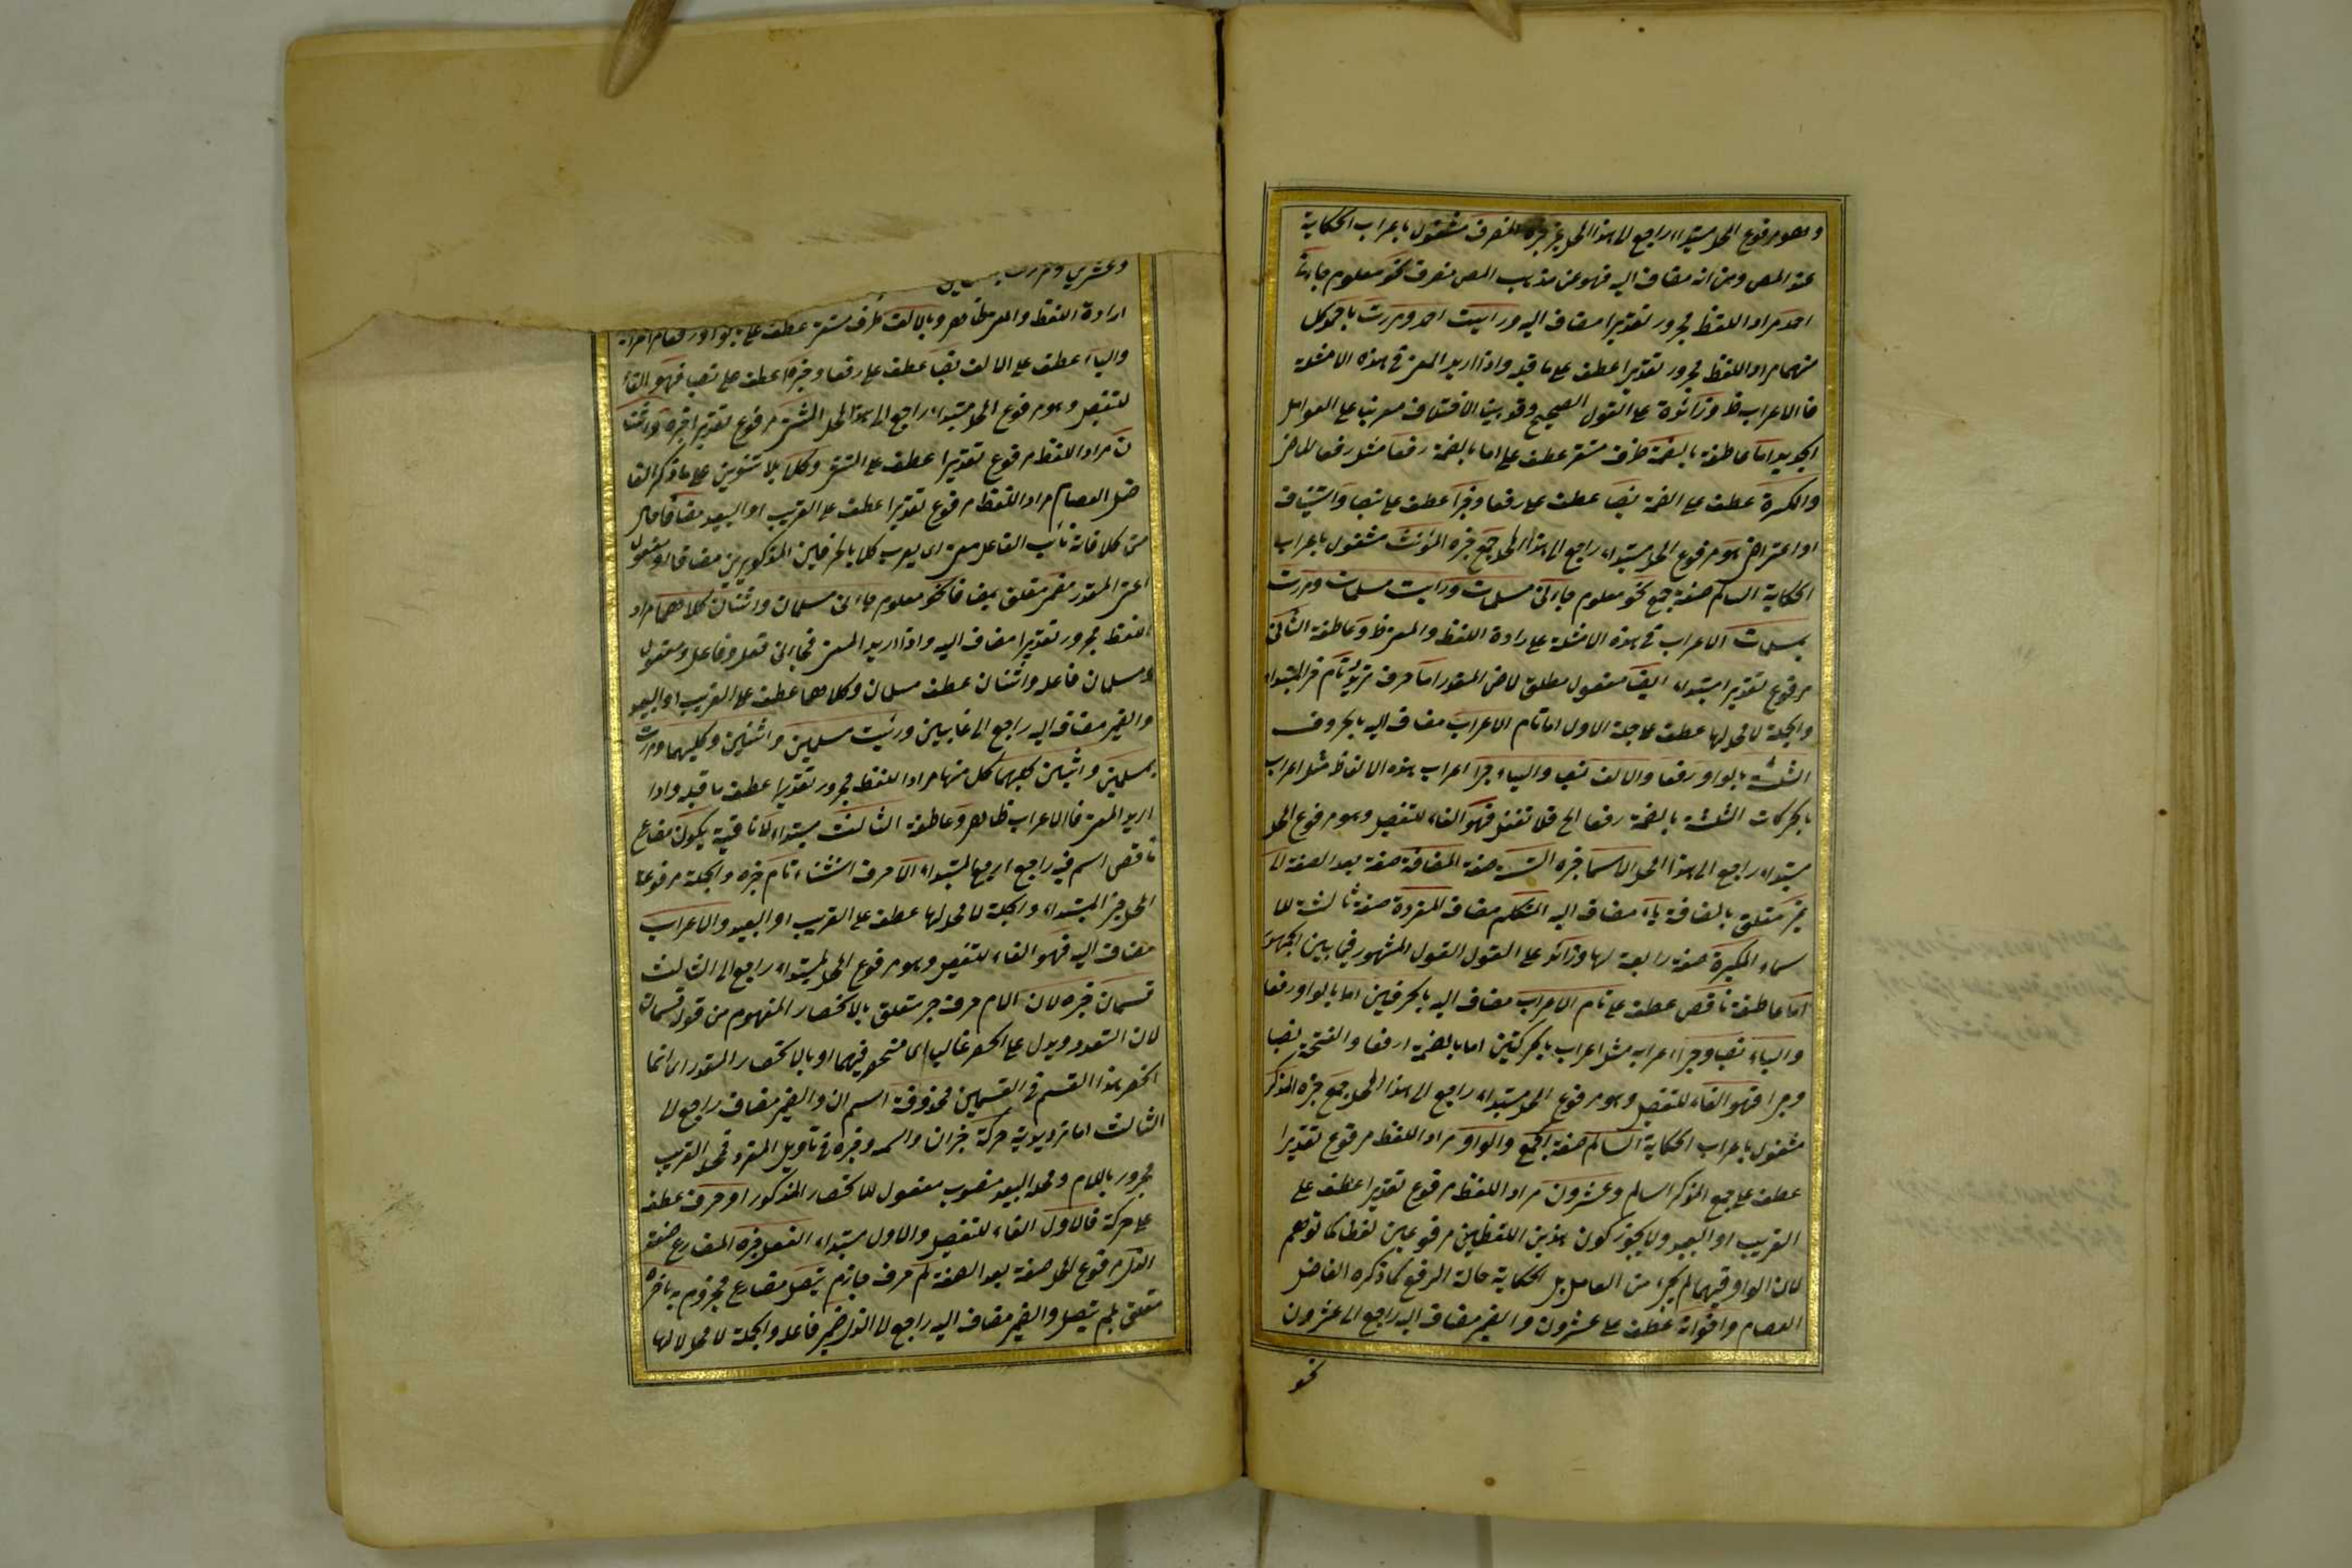 وهو مرفوع المحل مبتداء راجع الى هذا المحل غير خبره المنصرف مشغول باعراب الحكاية
عند المص ومن انه مضاف اليه فهو عن مذهب المص منصرف نحو معلوم جاءنى
احمد مراد اللفظ مجرور تقديرا مضاف اليه ورايت احمد ومررت باحمد كل
منهما مراد اللفظ مجرور تقديرا عطف على ما قبله واذا اريد المعنى فى هذه الامثلة
فالاعراب ظ وزائدة على القول الصحيح وقد بين الاختلاف معربنا على العوامل
الجديد اما عاطفة بالضمة ظرف مستقر عطف على اما بالضمة رفعا مثل رفعا الماضى
والكسرة عطف على الضمة نصبا عطف على رفعا وجرا عطف على نصبا واستيناف
او اعتراض هو مرفوع المحل مبتداء راجع الى هذا المحل جمع خبره المؤنث مشغول باعراب
الحكاية السالم صفة جمع نحو معلوم جاءنى مسلمات ورايت مسلمات ومررت
بمسلمات الاعراب فى هذه الامثلة على ارادة اللفظ والمعنى ظ وعاطفة الثانى
مرفوع تقديرا مبتداء ايضا مفعول مطلق لاض المقدر اما حرف ترديد تام خبر المبتداء
والجملة لا محل لها عطف على جملة الاول اما تام الاعراب مضاف اليه بالحروف
الثلثة بالواو رفعا والالف نصبا والياء جرا اعراب هذه الالفاظ مثل اعراب
بالحركات الثلثة بالضمة رفعا الخ فلا تغفل فهو الفاء للتفصيل وهو مرفوع المحل
مبتداء راجع الى هذا المحل الاسما خبره الستة صفة المضافة صفة بعد الصفة الى
غير متعلق بالمضافة ياء مضاف اليه المتكلم مضاف المفردة صفة ثالثة للا
سماء المكبرة صفة رابعة لها وزائد على القول القول المشهور فيما بين الجمهور
اما عاطفة ناقص عطف على تام الاعراب مضاف اليه بالحرفين اما بالواو رفعا
والياء نصبا وجرا اعرابه مثل اعراب بالحركتين اما بالضمة رفعا والفتحة نصبا
وجرا فهو الفاء للتفصيل وهو مرفوع المحل مبتداء راجع الى هذا المحل جمع خبره المذكر
مشغول باعراب الحكاية السالم صفة الجمع والواو مراد اللفظ مرفوع تقديرا
عطف على جمع المذكر السالم وعشرون مراد اللفظ مرفوع تقديرا عطف على
القريب او البعيد ولا يجوز كون هذين اللفظين مرفوعين لفظا كما توهم
لان الواو فيهما لم يجئ من العامل بل لحكاية حالة الرفع كما ذكره الفاضل
العصام واخواته عطف على عشرون والضمير مضاف اليه راجع الى عشرون
نحو
وعشرين
ارادة اللفظ والمعنى ظاهر وبالالف ظرف مستقر عطف على بالواو رفعا
والياء عطف على الالف نصبا عطف على رفعا وجرا عطف على نصبا فهو الفاء
للتفصيل وهو مرفوع المحل مبتداء راجع الى هذا المحل المثنى مرفوع تقديرا خبره واثنا
ن مراد اللفظ مرفوع تقديرا عطف على المثنى وكلا بلا تنوين على ما ذكره الفا
ضل العصام مراد اللفظ مرفوع تقديرا عطف على القريب او البعيد مضافا حال
من كلا فانه نائب الفاعل معنى اى يعرب كلا بالحرفين المذكورين مضافا او مفعول
اعنى المقدر مضمر متعلق بمضافا نحو معلوم جاءنى مسلمان واثنان كلاهما مراد
اللفظ مجرور تقديرا مضاف اليه واذا اريد المعنى فجاءنى فعل وفاعل ومفعول
ومسلمان فاعله واثنان عطف مسلمان وكلاهما عطف على القريب او البعيد
والضمير مضاف اليه راجع الى غائبين ورئيت مسلمين واثنين وكليهما ومررت
بمسلمين واثنين كليهما كل منها مراد اللفظ مجرور تقديرا عطف ما قبله واذا
اريد المعنى فالاعراب ظاهر وعاطفة الثالث مبتداء لا نافية يكون مضارع
ناقص اسم فيه راجع اريع المبتداء الا حرف استثناء تام خبره والجملة مرفوعة
المحل خبر المبتداء والجملة لا محل لها عطف على القريب او البعيد والاعراب
مضاف اليه فهو الفاء للتفصيل وهو مرفوع المحل المبتداء راجع الى الثالث
قسمان خبره لان اللام حرف جر متعلق بالانحصار المفهوم من قوله قسمان
لان التعدد ويدل على الحصر غالبا اى منحصر فيهما او بالانحصار المقدر اى انما
انحصر هذا القسم فى القسمين محذوفة اسم ان والضمير مضاف راجع الى
الثالث اما ترديدية حركة خبر ان واسمه وخبره فى تاويل المفرد فمحله القريب
مجرور باللام ومحله البعيد منصوب مفعول للانحصار المذكور او حرف عطف
على حركة فالاول الفاء للتفصيل والاول مبتداء الفعل خبره المضارع صفة
الذى مرفوع المحل صفة بعد الصفة لم حرف جازم يتصل مضارع مجزوم به باخره
متعلق لم يتصل والضمير مضاف اليه راجع الى الذى ضمير فاعله والجملة لا محل لها